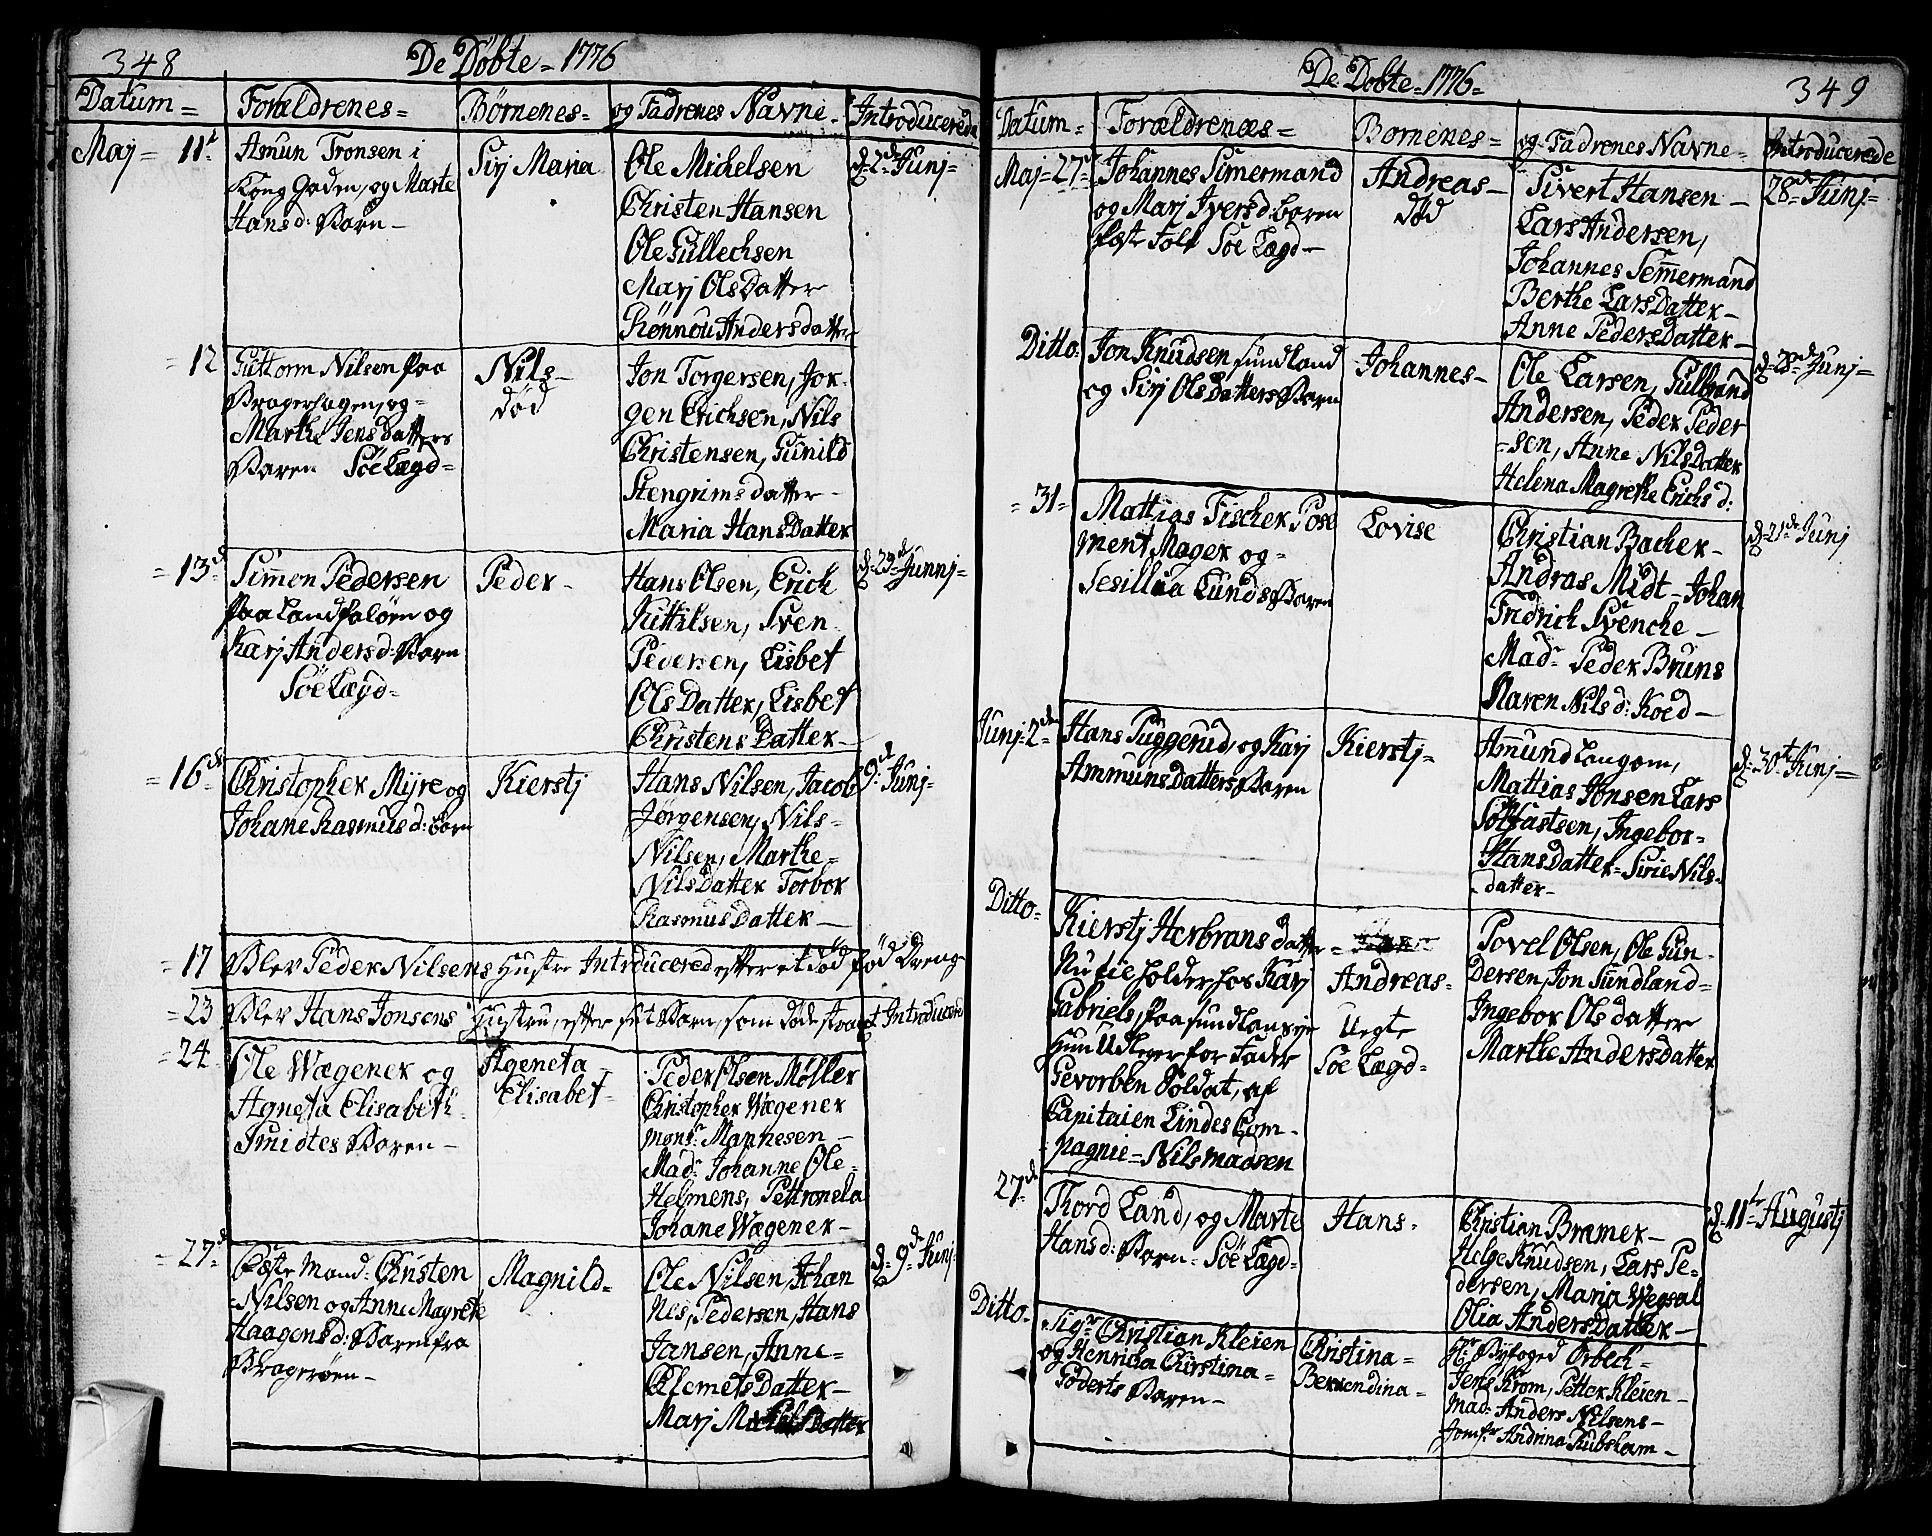 348
De Døbte = 1776
Datum = Forældrenes = Børnenes = og Fadrenes Navne - Introducerede
Maj = 11t
Amun Tronsen i
Kong Gaden, og Marte
Hansd: Barn -
Sirj Maria
Ole Michelsen
Christen Hansen
Ole Gullechsen
Marj OlsDatter
Rønnou Andersdatter
d: 2de Junj =
= 12
Guttorm Nilsen paa
Bragerhagen, og =
Marthe JensDatters
Baren Söe Lægd =
Nils -
död
Jon Torgersen, Jor-
gen Erichsen, Nils
Christensen, Gunild
Stengrimsdatter -
Maria HansDatter
= 13d
Simen Pedersen
paa Landfaløen og
Karj Andersd: Barn
Söe Lægd =
Peder -
Hans Olsen, Erich
Kittilsen, Sven
Pedersen, Lisbet
OlsDatter, Lisbet
ChristensDatter -
d: 23d Junnj =
= 16de
Christopher Myre og
Johane Rasmusd: barn
Kierstj
Hans Nilsen, Jacob
Jørgensen, Nils =
Nilsen, Marthe =
NilsDatter Torbor
RasmusDatter -
9de Junj =
= 17 Blev Peder Nilsens Hustru Introducered efter et död föd Dreng
= 23 Blev Hans Jonsens Hustru, efter sit Barn, som döde strax Introducered
= 24
Ole Wægener og
Agneta Elisabeth
Smidtes Baren -
Ageneta
Elisabet -
Peder Olsen Møller
Christopher Wægener
monsr Mannesen -
Mad: Johanne Ole =
Helmens, Pettronela
Johane Wægener -
= 27d
Gifte Mand: Christen
Nilsen og Anne Magrete
Haagensd: Baren fra
Bragerøen -
Magnild -
Ole Nilsen, Johan
Nes, Pedersen, Hans
Jansen, Anne =
ClemetsDatter -
Marj
d: 9de Junj =
De Døbte = 1776 =
349
Datum = Forældrenæs = Bornenes = og Fadrenes Navne = Introducerede
Maj = 27d
Johannes Simermand
og Marj Iversd: baren
Söe Lægd -
Andreas -
död
Sivert Hansen -
Lars Andersen,
Johannes Semermand
Berthe LarsDatter -
Anne PedersDatter -
28de Junj =
Ditto:
Jon Knudsen sundland
og Sirj OlsDatters Barn
Johannes -
Ole Larsen, Gulbrand
Andersen, Peder Peder
= sen, Anne NilsDatter
Helena Magrethe Erichsd:
d: 28de Junj =
= 31 =
Mattias Fischer Pose
ment Mager og =
Sesillia Lunds Baren
Lovise
Christian Backer -
Andras Midt - Johan
Fridrich Svencke -
Mad: Peder Bruns
Maren Nilsd: Koed -
d: 21de Junj
Junj = 2de
Hans Guggerud, og Karj
AmmunsDatters Baren
Kierstj -
Amund Langom,
Mattias Jonsen Lars
Solfastsen, Ingebor =
Hansdatter = Sirie Nils =
datter -
d: 30t Junj =
Ditto =
Kierstj Herbransdatter =
Nu tieholder hos Karj
Gabriels, paa sundlansie
hun Udleger for Fader
Gevorben Soldat, af
Capitaien Lindes Com =
pagnie = Nils Madsen
Andreas -
Uegte
Söe Lægd =
Povel Olsen, Ole Gun =
Dersen, Jon Sundland =
Ingebor OlsDatter
Marthe Andersdatter
27d
Thord Land, og Marte
Hansd: Barn = Söe Lægd =
Hans -
Christian Bræmer -
Helge Knudsen, Lars Pe =
dersen, Maria Wegsal
Olia AndersDatter -
d: 11t Augustj
Ditto =
Sigr Christian Kleien
og Henricha Christina =
Goderts Baren -
Christina =
Berrendina =
Hr Byfoged Orbech =
Jens Krom, Petter Kleien -
Mad: Anders Nilsens -
Jomfr Andrina Kubsham -